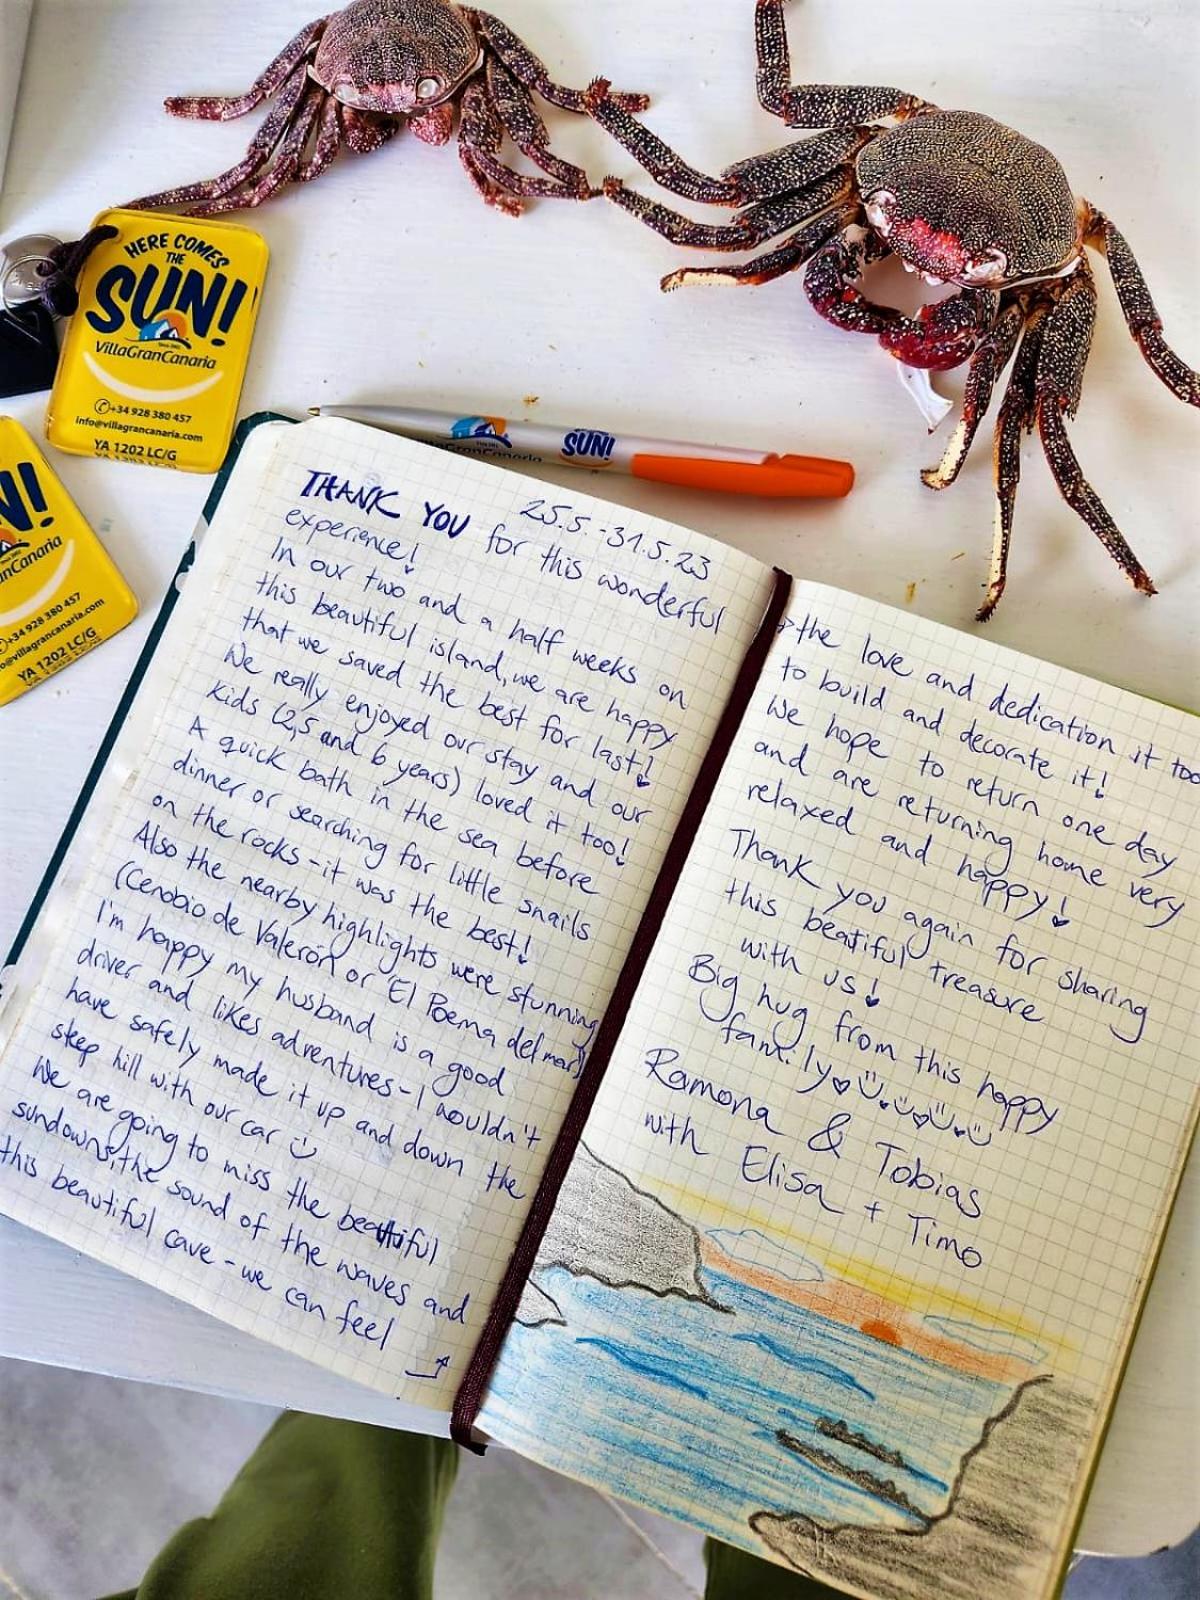 HERE COMES
THE
SUN!
Since 2002
VillaGranCanaria
+34 928 380 457
info@villagrancanaria.com
YA 1202 LC/G
N!
nCanaria
+34 928 380 457
o@villagrancanaria.com
YA 1202 LC/G
GranCanaria
SUN!
25.5.-31.5.23
THANK YOU for this wonderful
experience!
In our two and a half weeks on
this beautiful island, we are happy
that we saved the best for last!
We really enjoyed our stay and our
kids (2,5 and 6 years) loved it too!
A quick bath in the sea before
dinner or searching for little snails
on the rocks - it was the best!
Also the nearby highlights were stunning
(Cenobio de Valerón or El Poema del mar)
I'm happy my husband is a good
driver and likes adventures - I wouldn't
have safely made it up and down the
steep hill with our car
We are going to miss the beautiful
sundowns, the sound of the waves and
this beautiful cave - we can feel
the love and dedication it too
to build and decorate it!
We hope to return one day
and are returning home very
relaxed and happy!
Thank you again for sharing
this beatiful treasure
with us!
Big hug from this happy
family
Ramona & Tobias
with Elisa + Timo